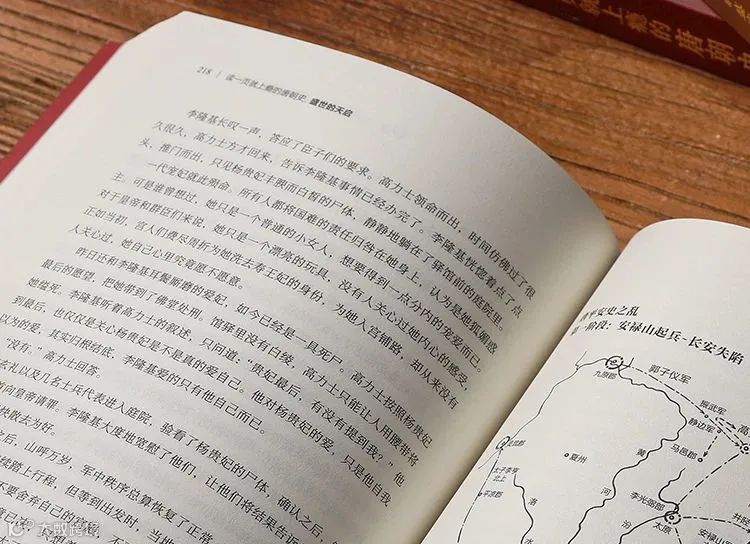 218 | 读一页就上瘾的唐朝史·盛世的天启
李隆基长叹一声，答应了臣子们的要求。高力士领命而出，时间仿佛过了很
久很久，高力士方才回来，告诉李隆基事情已经办完了。李隆基恍惚着点了点
头，推门而出，只见杨贵妃丰腴而白皙的尸体，静静地躺在了驿馆前的庭院里。
一代宠妃就此殒命。所有人都将国难的责任归咎在她身上，认为是她狐媚惑
主。可是谁曾想过，她只是一个普通的小女人，想要得到一点分内的宠爱而已。
对于皇帝和群臣们来说，她只是一个漂亮的玩具，没有人关心过她内心的感受，
正如当初，宫人们费尽周折为她洗去寿王妃的身份，为她入宫铺路，却从来没有
人关心过，她自己心里究竟愿不愿意。
昨日还和李隆基耳鬓厮磨的爱妃，如今已经是一具死尸。高力士按照杨贵妃
最后的愿望，把她带到了佛堂处刑。馆驿里没有白绫，高力士只能让人用腰带将
她缢死。李隆基听着高力士的叙述，只问道：“贵妃最后，有没有提到我？”他
到最后，也仅仅是关心杨贵妃是不是真的爱自己。他对杨贵妃的爱，只是他自我
以为的爱，其实归根结底，李隆基爱的只有他自己而已。
“没有。”高力士回答。
玄礼以及几名士兵代表进入庭院，验看了杨贵妃的尸体，确认之后，
向皇帝请罪。李隆基大度地宽慰了他们，让他们将结果告诉
快散去为好。
之后，山呼万岁，军中秩序总算恢复了正常
续踏上行程，但等到出发时，当
不要舍弃自己的
平安史之乱
一阶段：安禄山起兵-长安失陷
郭子仪军
九原郡
振武军
静边军
马邑郡
夏州
黄
河
洛
水
汾
太子李亨
北上
平凉郡
李光弼军
太原
安禄山
上瘾的唐朝
大蚁跨境